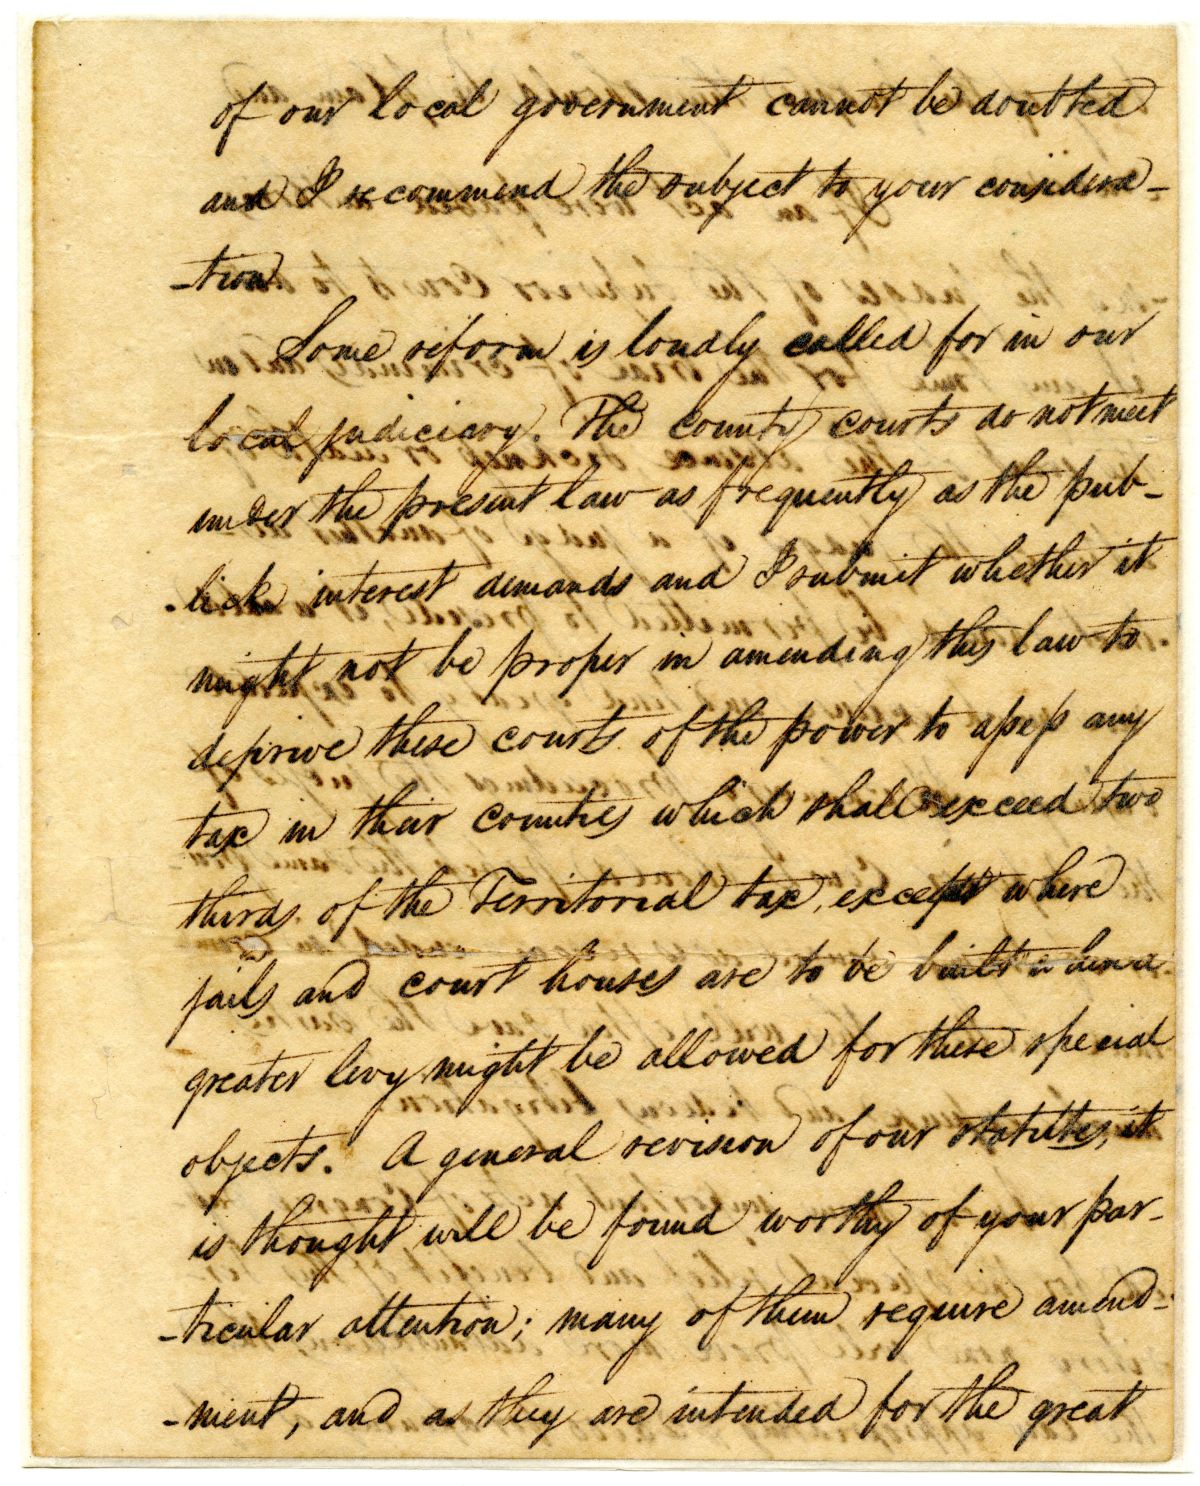 of our local government cannot be doubted
and I recommend the subject to your considera-
-tion
Some reform is loudly called for in our
local judiciary. The county courts do not meet
under the present law as frequently as the pub-
-lick interest demands and I submit whether it
might not be proper in amending this law to
deprive these courts of the power to aſseſs any
tax in their counties which shall exceed two
thirds of the Territorial tax, except where
jails and court houses are to be built when a
greater levy might be allowed for these special
objects. A general revision of our statutes, it
is thought will be found worthy of your par-
-ticular attention; many of them require amend-
-ment, and as they are intended for the great